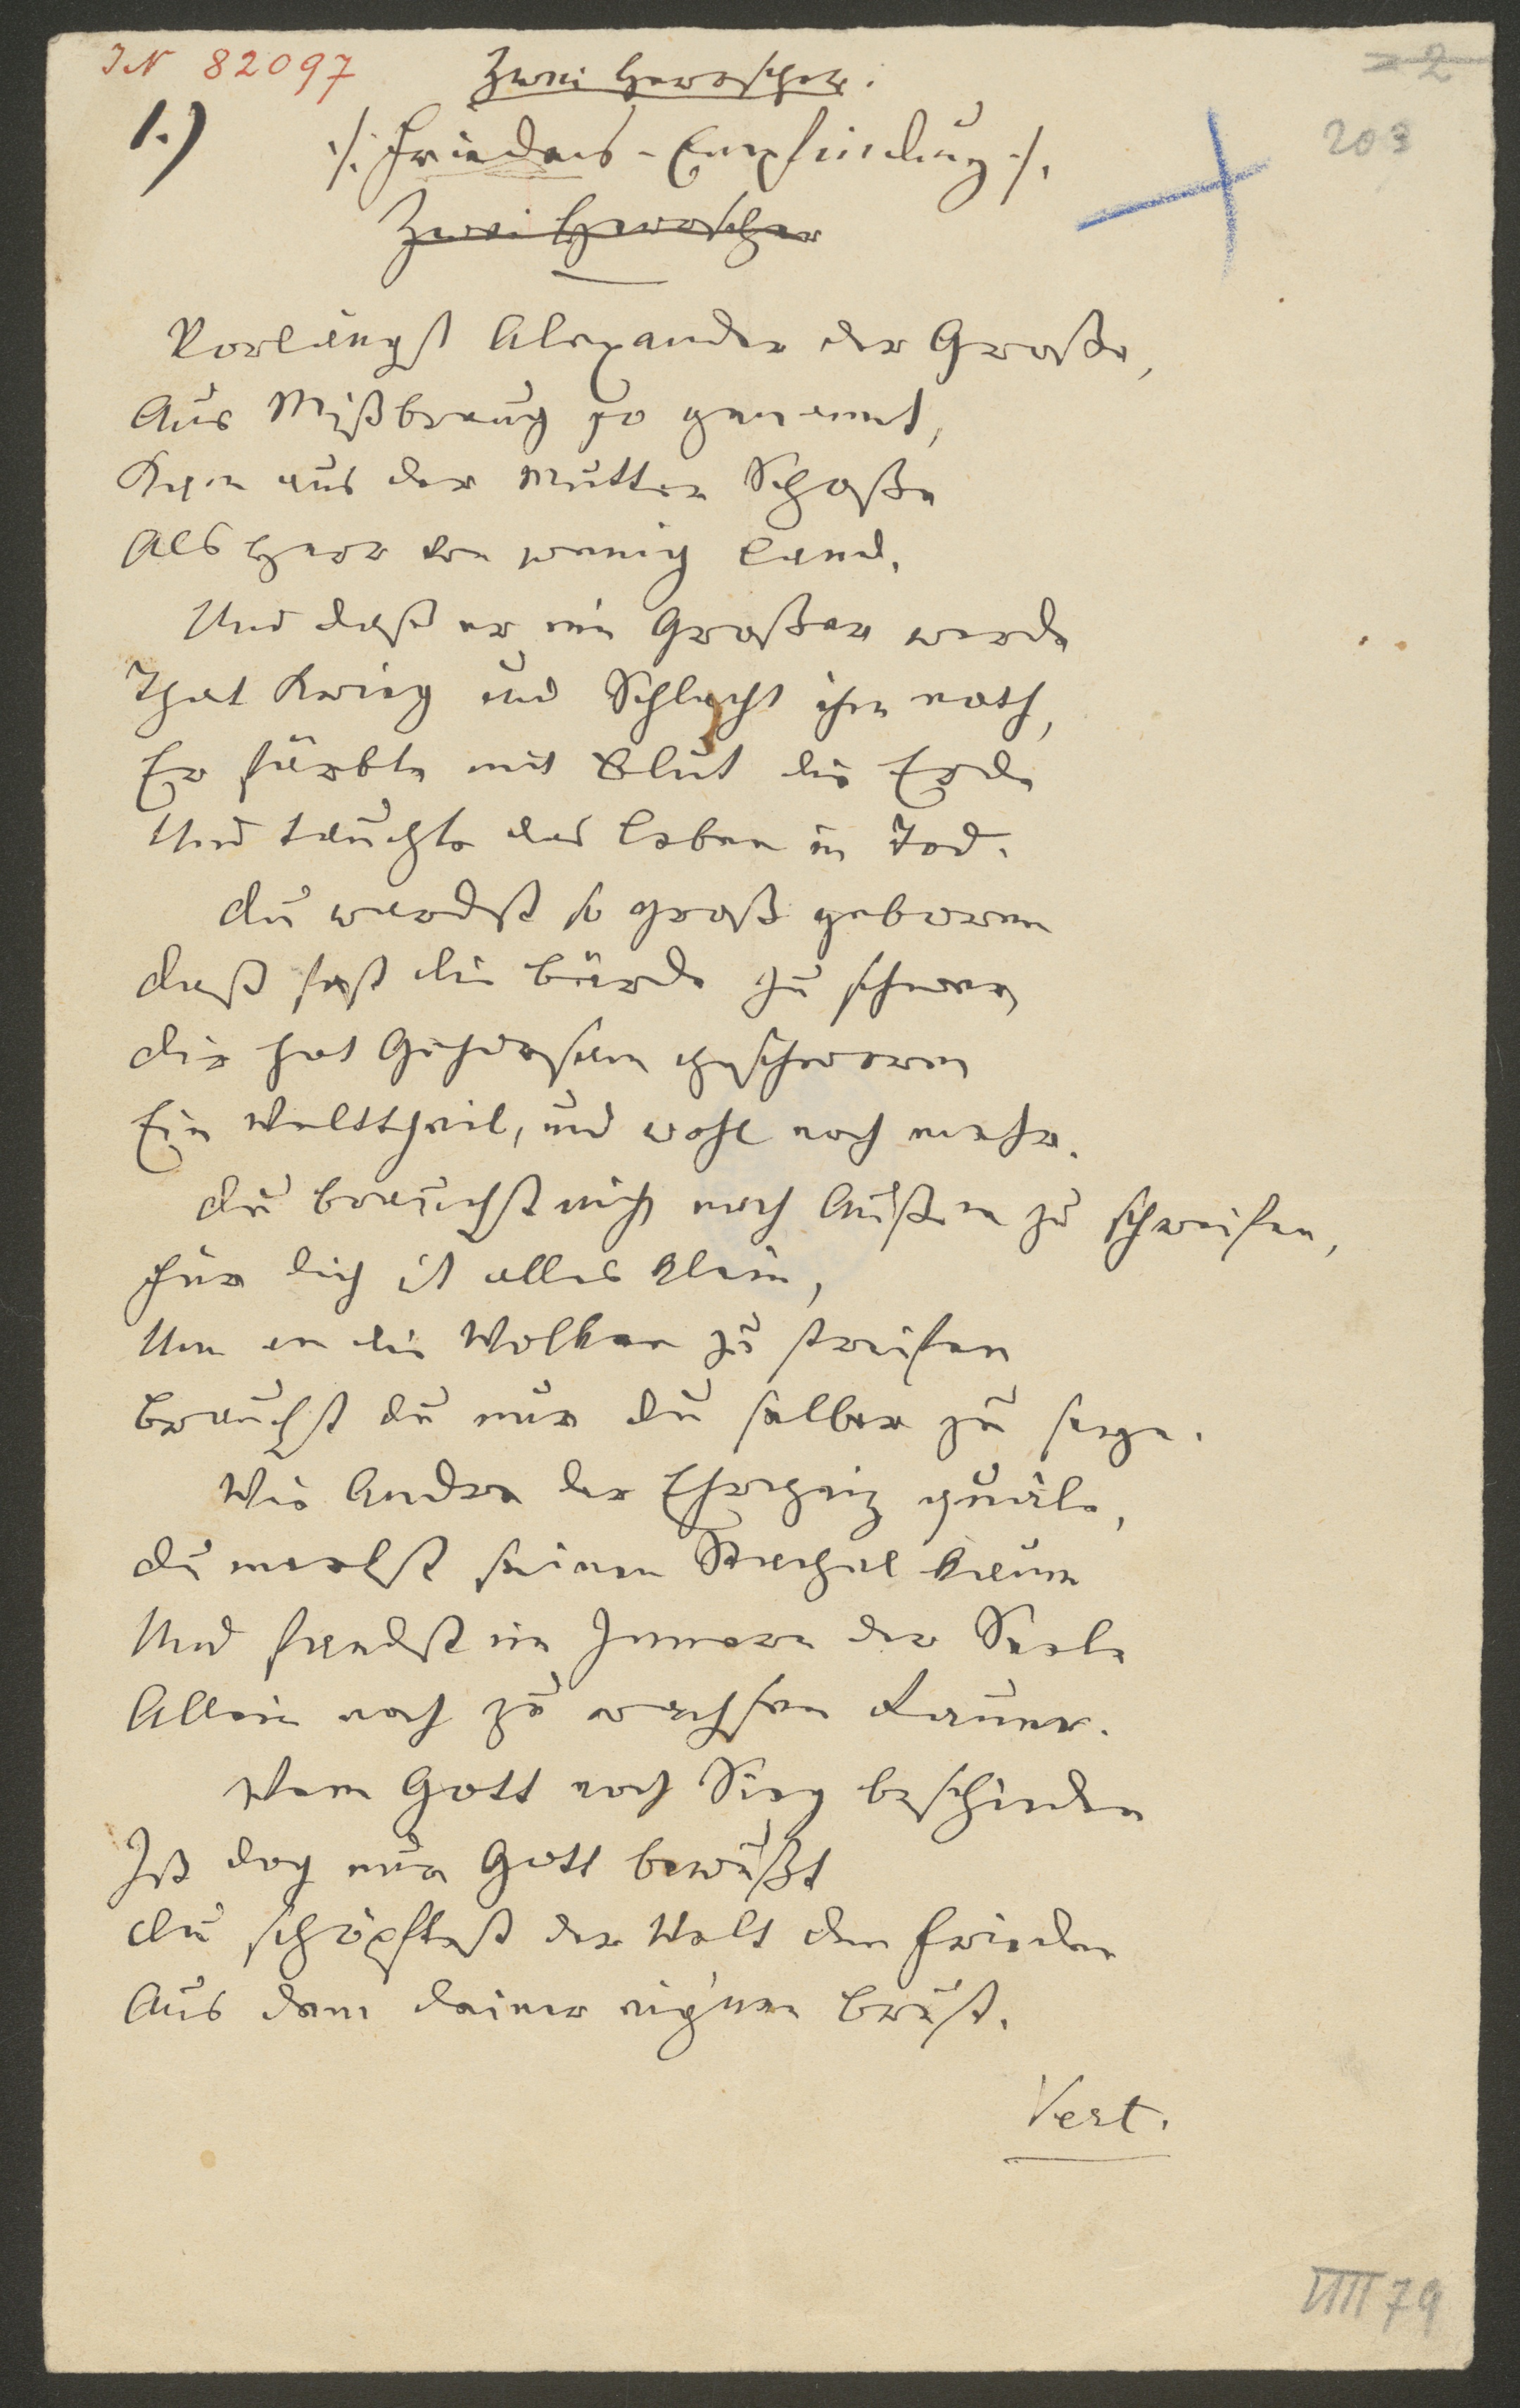 IN 82097
Zwei Herrscher.
= 2
203
1.) ./. Friedens-Empfindung ./.
Zwei Herrscher
Vorlängst Alexander der Große,
Aus Mißbrauch so genannt,
Kam aus der Mutter Schoße
Als Herr von wenig Land.
Und daß er ein Großer werde
That Krieg und Schlacht ihm noth,
Er färbte mit Blut die Erde
Und tauchte das Leben in Tod.
Du wardst so groß geboren
Daß fast die Bürde zu schwer,
Dir hat Gehorsam geschworen
Ein Welttheil, und wohl noch mehr.
Du brauchst nicht nach Außen zu schweifen,
Für dich ist alles klein,
Um an die Wolken zu streifen
Brauchst du nur du selber zu seyn.
Wie Andre der Ehrgeiz quäle,
Du merkst seinen Stachel kaum
Und fandst im Innern der Seele
Allein noch zu wachsen Raum.
Wem Gott noch Sieg beschieden
Ist doch nur Gott bewußt
Du schöpftest der Welt den Frieden
Aus dem deiner eig'nen Brust.
Vert.
VIII 79